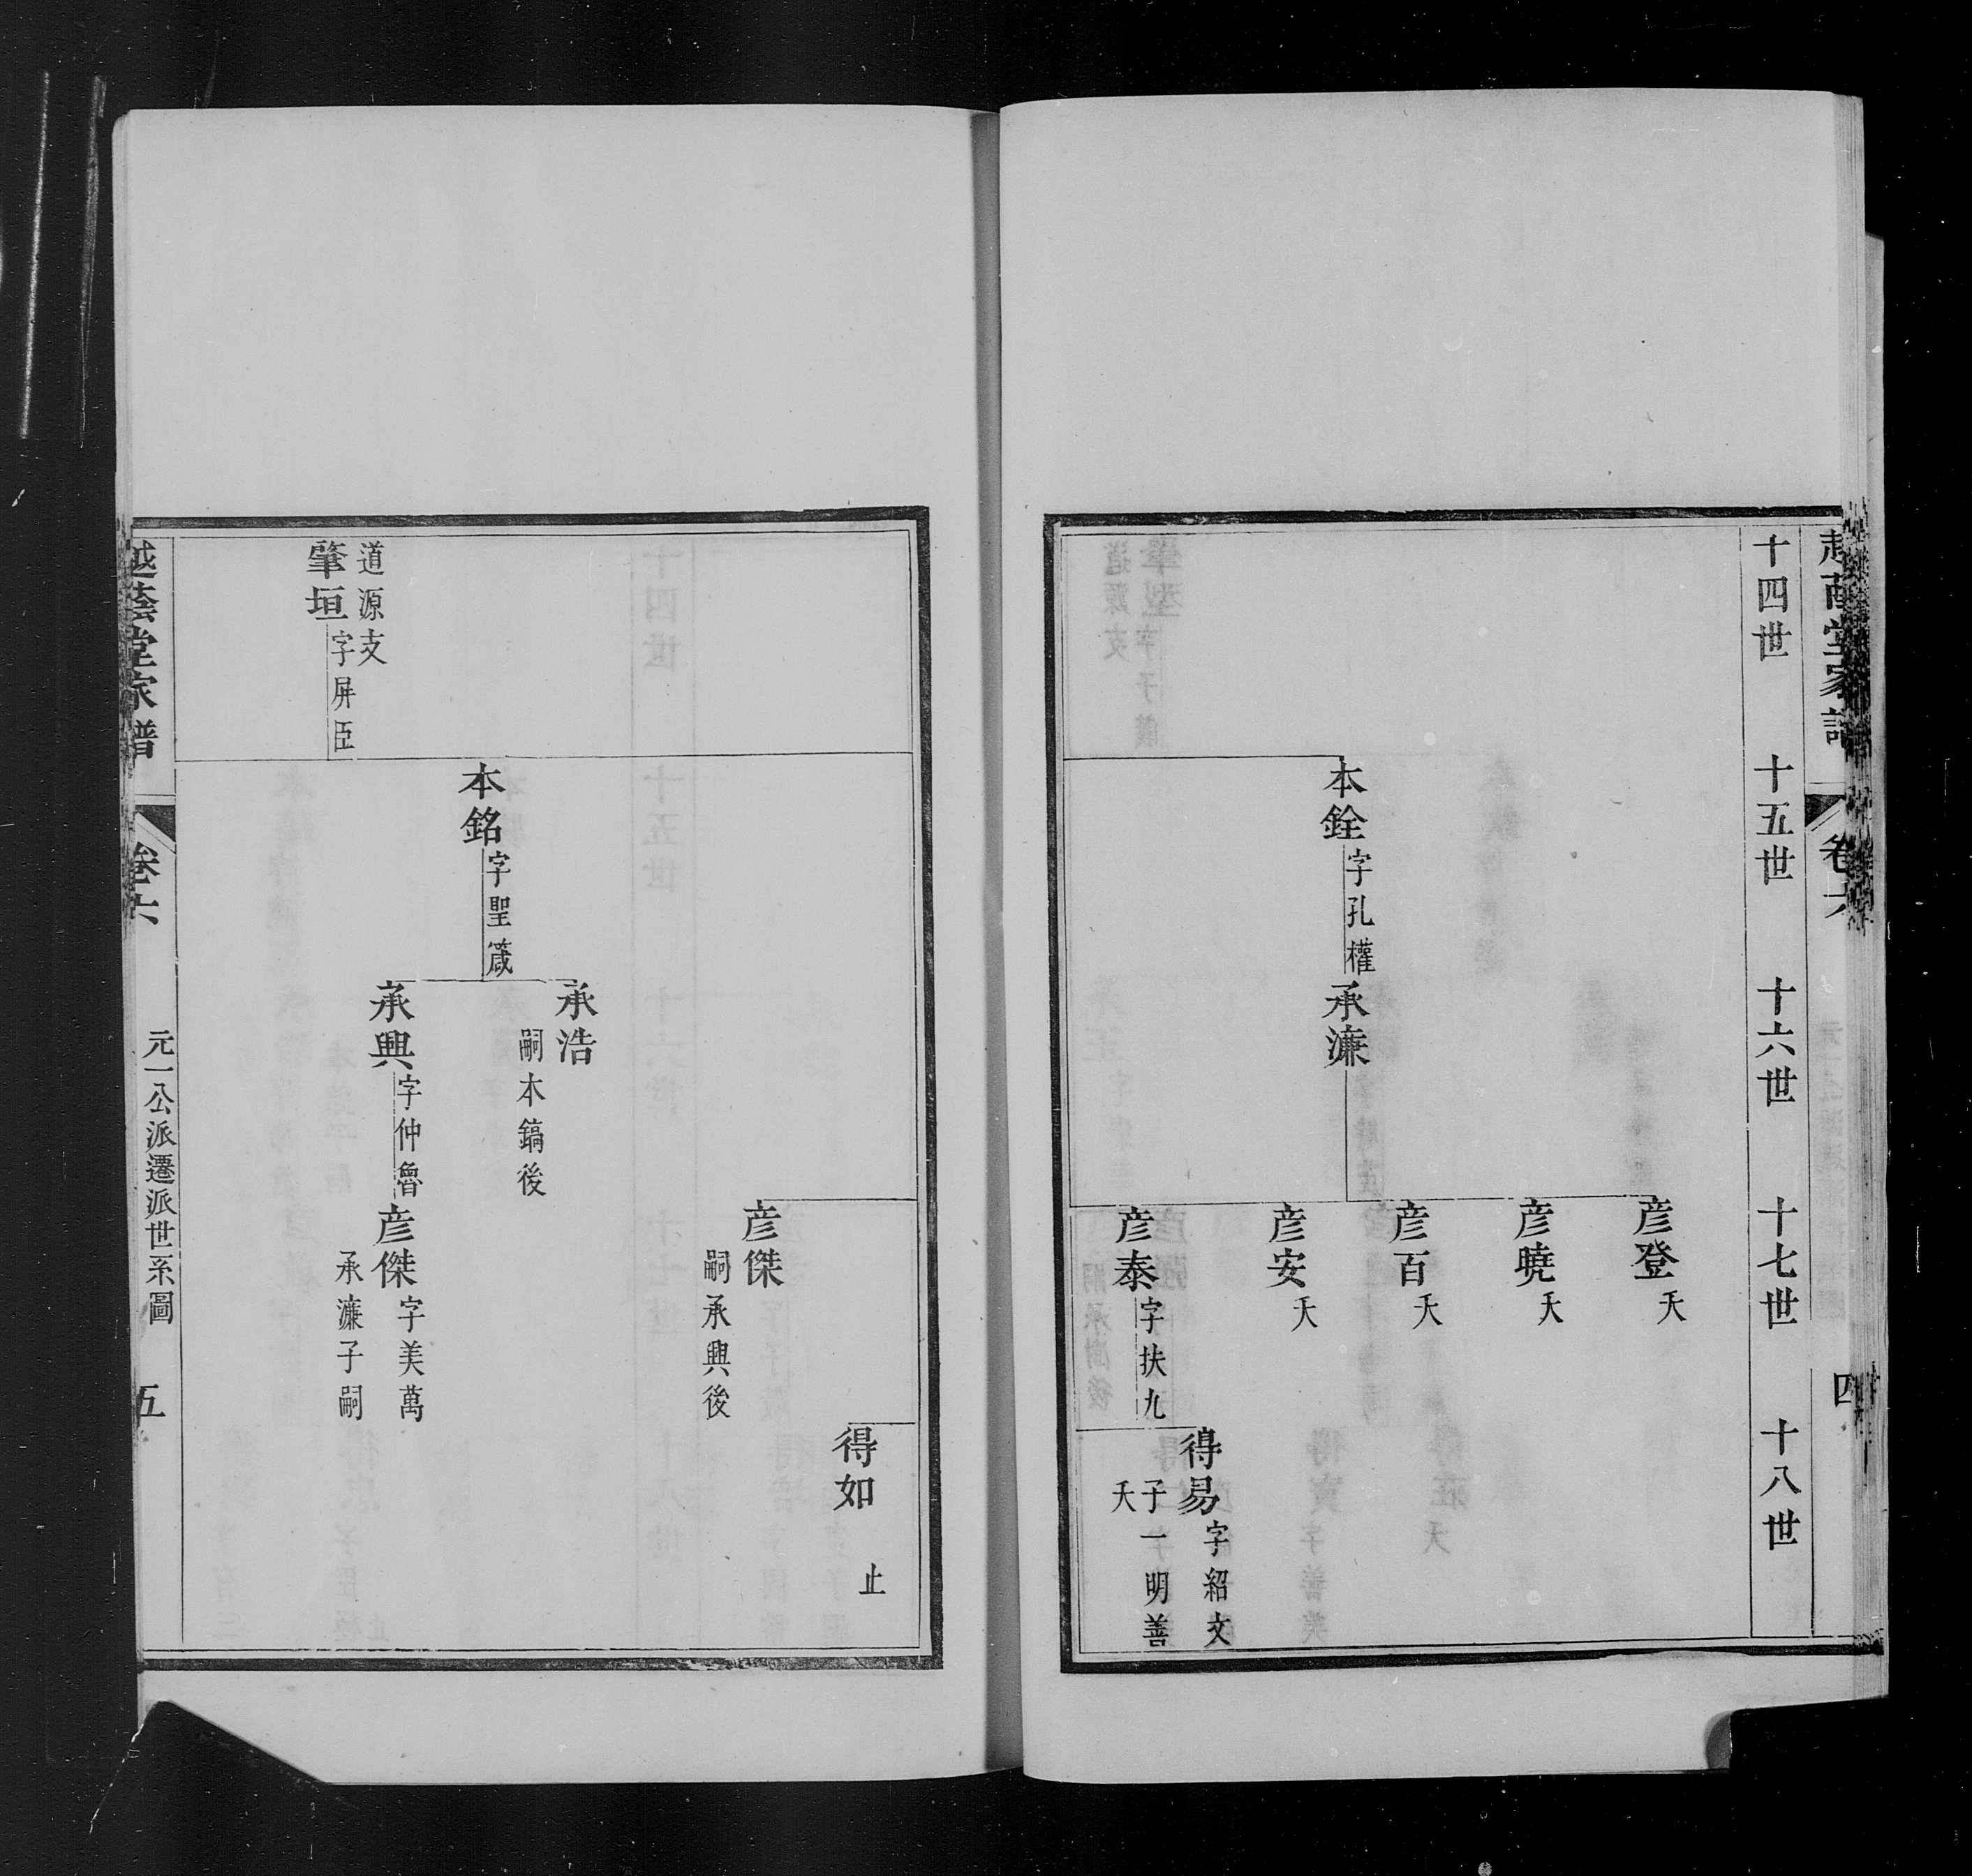 十四世 十五世 十六世 十七世 十八世
本銓 字孔權
承濂
彦登 夭
彦曉 夭
彦百 夭
彦安 夭
彦泰 字扶九
得易 字紹文
子一明善
夭
卷六
四
得如 止
彦傑
嗣承興後
承浩
嗣本鎬後
本銘 字聖箴
承興 字仲魯
彦傑 字美萬
承濂子嗣
道源支
肇垣 字屏臣
越蔭堂家譜 卷六 元一公派遷派世系圖 五